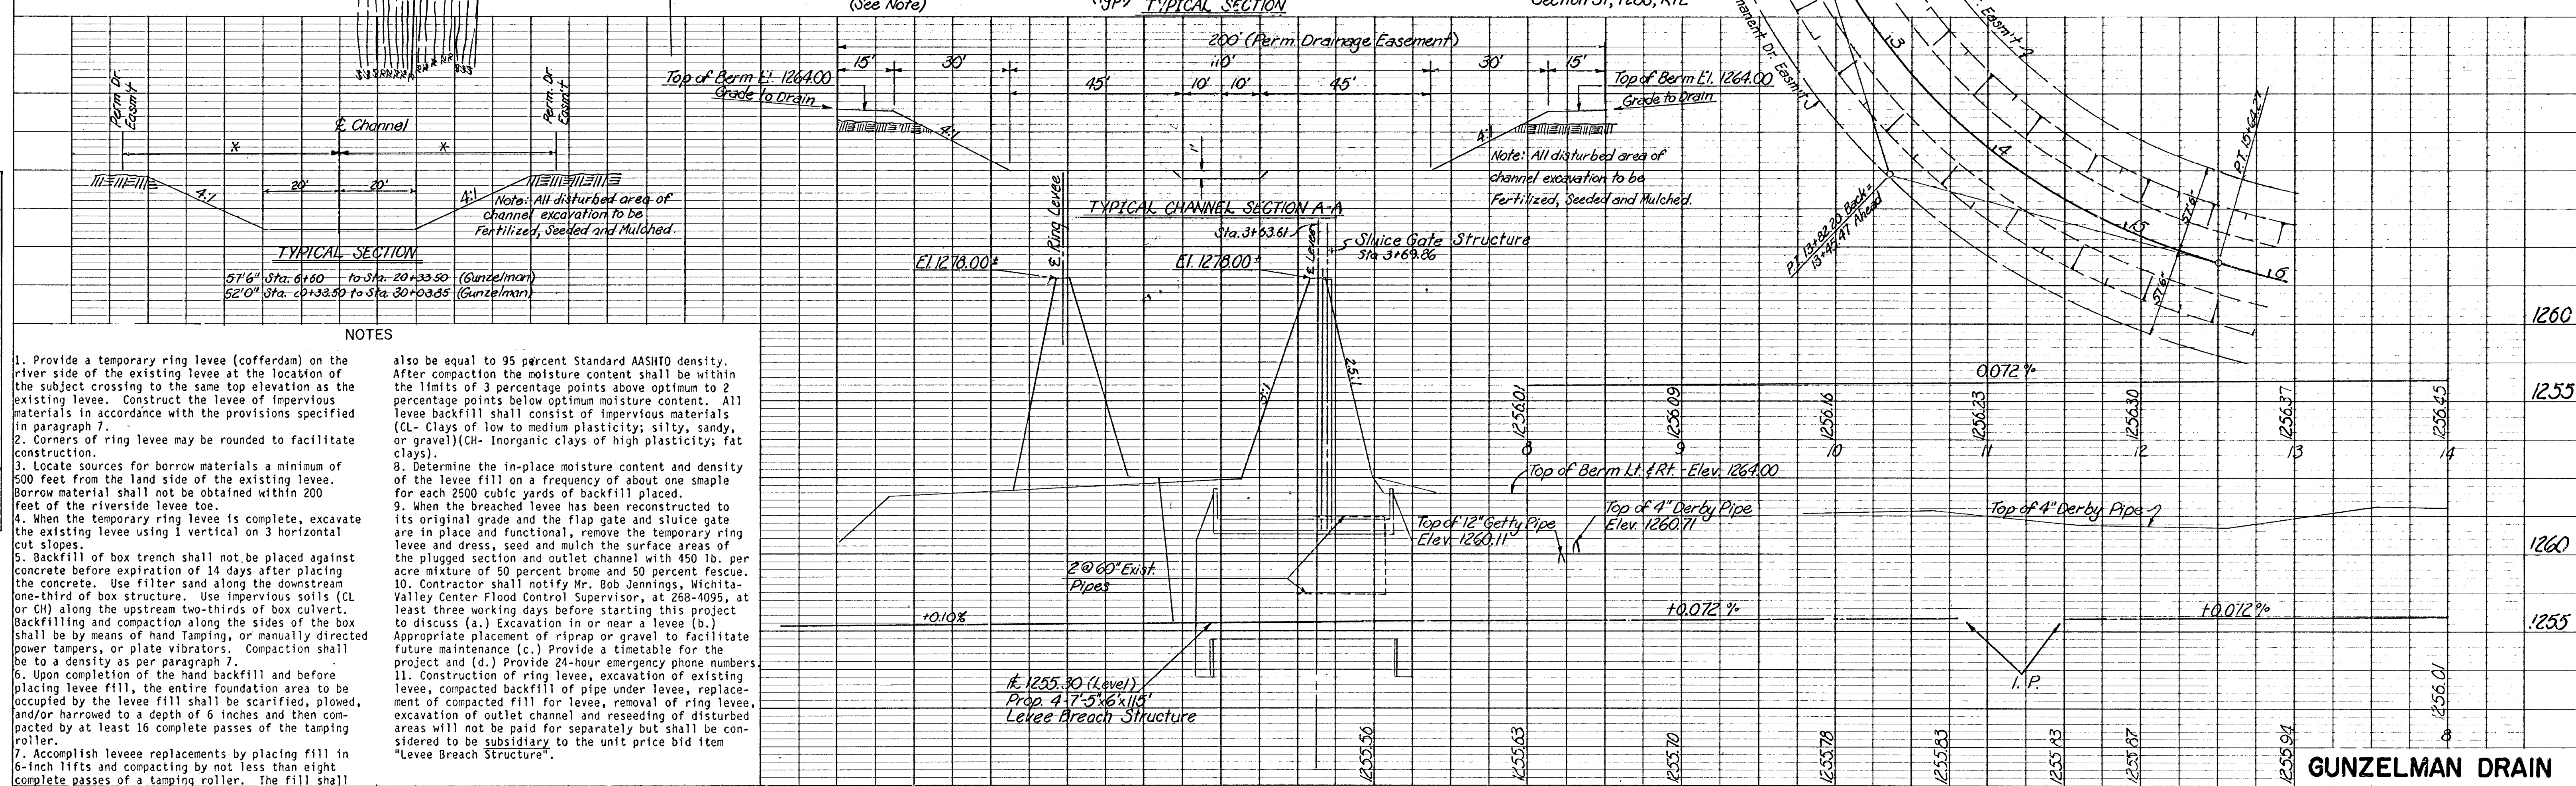 (See Note)
(Typ)
TYPICAL SECTION
Perm. Dr.
Easm't
℄ Channel
Perm. Dr
Easm't
*
*
20'
20'
4:1
4:1
Note: All disturbed area of
channel excavation to be
Fertilized, Seeded and Mulched.
TYPICAL SECTION
57'6" Sta. 6+60 to Sta. 20+33.50 (Gunzelman)
52'0" Sta. 20+33.50 to Sta. 30+03.85 (Gunzelman)
200' (Perm. Drainage Easement)
15'
30'
110'
30'
15'
45'
10'
10'
45'
Top of Berm El. 1264.00
Grade to Drain
4:1
Top of Berm El. 1264.00
Grade to Drain
4:1
1'
Note: All disturbed area of
channel excavation to be
Fertilized, Seeded and Mulched.
TYPICAL CHANNEL SECTION A-A
Sta. 3+63.61
Sluice Gate Structure
Sta 3+69.86
℄ Ring Levee
℄ Levee
El. 1278.00±
El. 1278.00±
3:1
2.5:1
manent Dr. Easm't
Easm't
13
14
15
16
P.T. 13+82.20 Back=
13+45.47 Ahead
P.T. 15+64.27
57'6"
57'6"
NOTES
1. Provide a temporary ring levee (cofferdam) on the
river side of the existing levee at the location of
the subject crossing to the same top elevation as the
existing levee. Construct the levee of impervious
materials in accordance with the provisions specified
in paragraph 7.
2. Corners of ring levee may be rounded to facilitate
construction.
3. Locate sources for borrow materials a minimum of
500 feet from the land side of the existing levee.
Borrow material shall not be obtained within 200
feet of the riverside levee toe.
4. When the temporary ring levee is complete, excavate
the existing levee using 1 vertical on 3 horizontal
cut slopes.
5. Backfill of box trench shall not be placed against
concrete before expiration of 14 days after placing
the concrete. Use filter sand along the downstream
one-third of box structure. Use impervious soils (CL
or CH) along the upstream two-thirds of box culvert.
Backfilling and compaction along the sides of the box
shall be by means of hand Tamping, or manually directed
power tampers, or plate vibrators. Compaction shall
be to a density as per paragraph 7.
6. Upon completion of the hand backfill and before
placing levee fill, the entire foundation area to be
occupied by the levee fill shall be scarified, plowed,
and/or harrowed to a depth of 6 inches and then com-
pacted by at least 16 complete passes of the tamping
roller.
7. Accomplish leveee replacements by placing fill in
6-inch lifts and compacting by not less than eight
complete passes of a tamping roller. The fill shall
also be equal to 95 percent Standard AASHTO density.
After compaction the moisture content shall be within
the limits of 3 percentage points above optimum to 2
percentage points below optimum moisture content. All
levee backfill shall consist of impervious materials
(CL- Clays of low to medium plasticity; silty, sandy,
or gravel)(CH- Inorganic clays of high plasticity; fat
clays).
8. Determine the in-place moisture content and density
of the levee fill on a frequency of about one smaple
for each 2500 cubic yards of backfill placed.
9. When the breached levee has been reconstructed to
its original grade and the flap gate and sluice gate
are in place and functional, remove the temporary ring
levee and dress, seed and mulch the surface areas of
the plugged section and outlet channel with 450 lb. per
acre mixture of 50 percent brome and 50 percent fescue.
10. Contractor shall notify Mr. Bob Jennings, Wichita-
Valley Center Flood Control Supervisor, at 268-4095, at
least three working days before starting this project
to discuss (a.) Excavation in or near a levee (b.)
Appropriate placement of riprap or gravel to facilitate
future maintenance (c.) Provide a timetable for the
project and (d.) Provide 24-hour emergency phone numbers.
11. Construction of ring levee, excavation of existing
levee, compacted backfill of pipe under levee, replace-
ment of compacted fill for levee, removal of ring levee,
excavation of outlet channel and reseeding of disturbed
areas will not be paid for separately but shall be con-
sidered to be subsidiary to the unit price bid item
"Levee Breach Structure".
1260
0.072%
1255
1256.01
1256.09
1256.16
1256.23
1256.30
1256.37
1256.45
8
9
10
11
12
13
14
Top of Berm Lt. & Rt. - Elev. 1264.00
Top of 12" Getty Pipe
Elev. 1260.11
Top of 4" Derby Pipe
Elev. 1260.71
Top of 4" Derby Pipe
1260
2 @ 60" Exist.
Pipes
+0.10%
+0.072%
+0.072%
1255
I.P.
℄ 1255.30 (Level)
Prop. 4-7'-5"x6'x115'
Levee Breach Structure
1255.56
1255.63
1255.70
1255.78
1255.83
1255.83
1255.87
1255.94
1256.01
8
GUNZELMAN DRAIN